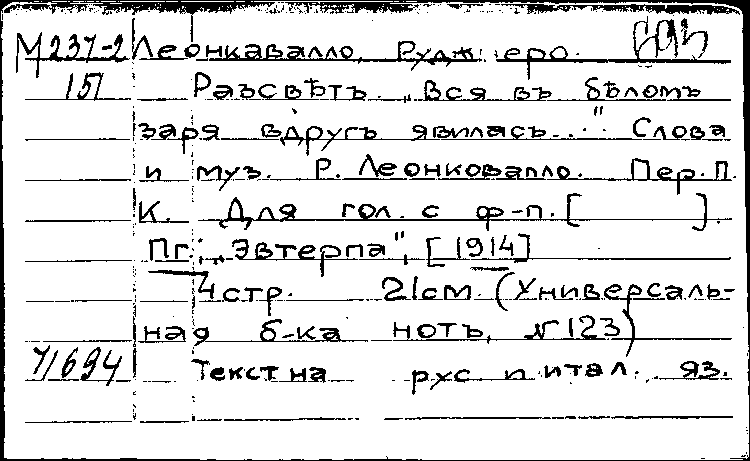 М237-2 Леонкавалло, Руджиеро.
151 Разсвѣтъ. „Вся въ бѣломъ
заря вдругъ явилась..." Слова
и муз. Р. Леонковалло. Пер. П.
К. Для гол. с ф-п. [ ].
Пг., „Эвтерпа", [1914]
4 стр. 21 см. (Универсаль-
ная б-ка нотъ, № 123)
71694 Текст на рус. и итал. яз.